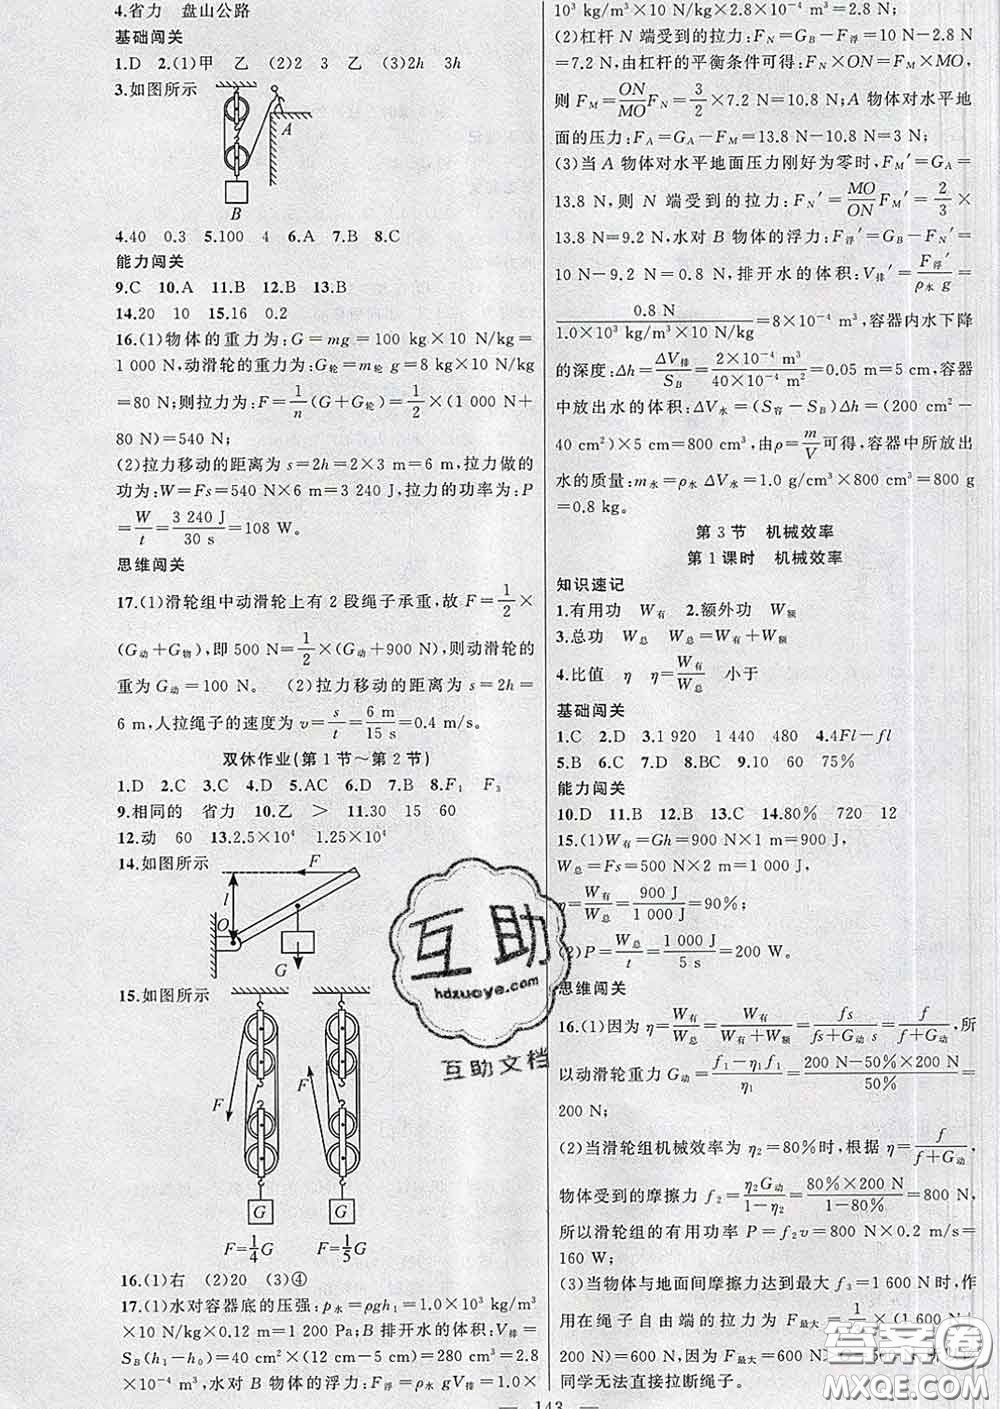 4.省力 盘山公路
基础闯关
1.D 2.(1)甲 乙 (2)2 3 乙 (3)2h 3h
3.如图所示
A
B
4.40 0.3 5.100 4 6.A 7.B 8.C
能力闯关
9.C 10.A 11.B 12.B 13.B
14.20 10 15.16 0.2
16.(1)物体的重力为:G=mg=100 kg×10 N/kg=
1 000 N,动滑轮的重力为:G轮=m轮 g=8 kg×10 N/kg
=80 N;则拉力为:F=1/n(G+G轮)=1/2×(1 000 N+
80 N)=540 N;
(2)拉力移动的距离为 s=2h=2×3 m=6 m,拉力做的
功为:W=Fs=540 N×6 m=3 240 J,拉力的功率为:P
=W/t=3 240 J/30 s=108 W。
思维闯关
17.(1)滑轮组中动滑轮上有 2 段绳子承重,故 F=1/2×
(G动+G物),即 500 N=1/2×(G动+900 N),则动滑轮的
重为 G动=100 N。 (2)拉力移动的距离为 s=2h=
6 m,人拉绳子的速度为 v=s/t=6 m/15 s=0.4 m/s。
双休作业(第 1 节~第 2 节)
1.D 2.C 3.C 4.D 5.AC 6.D 7.B 8.F1 F3
9.相同的 省力 10.乙 > 11.30 15 60
12.动 60 13.2.5×10⁴ 1.25×10⁴
14.如图所示
F
l
O
G
15.如图所示
F
F
G
G
F=1/4G F=1/5G
16.(1)右 (2)20 (3)④
17.(1)水对容器底的压强:p水=ρgh1=1.0×10³ kg/m³
×10 N/kg×0.12 m=1 200 Pa;B 排开水的体积:V排=
SB(h1−h0)=40 cm²×(12 cm−5 cm)=280 cm³=2.8
×10⁻⁴ m³,水对 B 物体的浮力:F浮=ρ水 gV排=1.0×
10³ kg/m³×10 N/kg×2.8×10⁻⁴ m³=2.8 N;
(2)杠杆 N 端受到的拉力:FN=GB−F浮=10 N−2.8 N
=7.2 N,由杠杆的平衡条件可得:FN×ON=FM×MO,
则 FM=ON/MO FN=3/2×7.2 N=10.8 N;A 物体对水平地
面的压力:FA=GA−FM=13.8 N−10.8 N=3 N;
(3)当 A 物体对水平地面压力刚好为零时,FM′=GA=
13.8 N,则 N 端受到的拉力:FN′=MO/ON FM′=2/3×
13.8 N=9.2 N,水对 B 物体的浮力:F浮′=GB−FN′=
10 N−9.2 N=0.8 N,排开水的体积:V排′=F浮′/ρ水 g=
0.8 N/1.0×10³ kg/m³×10 N/kg=8×10⁻⁵ m³,容器内水下降
的深度:Δh=ΔV排/SB=2×10⁻⁴ m³/40×10⁻⁴ m²=0.05 m=5 cm,容器
中放出水的体积:ΔV水=(S容−SB)Δh=(200 cm²−
40 cm²)×5 cm=800 cm³,由 ρ=m/V可得,容器中所放出
水的质量:m水=ρ水 ΔV水=1.0 g/cm³×800 cm³=800 g
=0.8 kg。
第 3 节 机械效率
第 1 课时 机械效率
知识速记
1.有用功 W有 2.额外功 W额
3.总功 W总 W总=W有+W额
4.比值 η η=W有/W总 小于
基础闯关
1.C 2.D 3.1 920 1 440 480 4.4Fl−fl
5.B 6.C 7.D 8.BC 9.10 60 75%
能力闯关
10.D 11.B 12.B 13.C 14.80% 720 12
15.(1)W有=Gh=900 N×1 m=900 J,
W总=Fs=500 N×2 m=1 000 J,
η=W有/W总=900 J/1 000 J=90%;
(2)P=W总/t=1 000 J/5 s=200 W。
思维闯关
16.(1)因为 η=W有/W总=W有/W有+W额=fs/fs+G动 s=f/f+G动,所
以动滑轮重力 G动=f1−η1f1/η1=200 N−50%×200 N/50%=
200 N;
(2)当滑轮组机械效率为 η2=80%时,根据 η=f/f+G动,
物体受到的摩擦力 f2=η2G动/1−η2=80%×200 N/1−80%=800 N,
所以滑轮组的有用功率 P=f2v=800 N×0.2 m/s=
160 W;
(3)当物体与地面间摩擦力达到最大 f3=1 600 N时,作
用在绳子自由端的拉力为 F最大=1/3×(1 600 N+
200 N)=600 N,因为 F最大=600 N
同学无法直接拉断绳子。
143
互助
hdzuoye.com
互助文档
答案圈
MXQE.COM